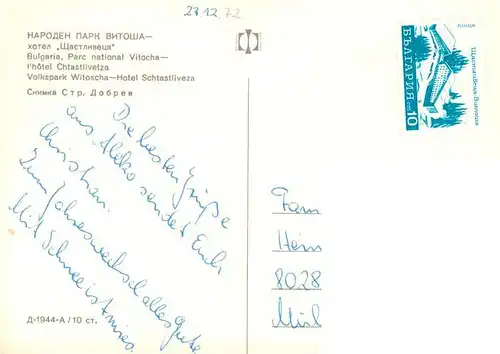 23.12.72
НАРОДЕН ПАРК ВИТОША—
хотел „Щастливеца“
Bulgaria, Parc national Vitocha—
l'hôtel Chtastlivetza
Volkspark Witoscha—Hotel Schtastliveza
Снимка Стр. Добрев
Die besten Grüße
aus Aleko sendet Euch
Christian.
Zum Jahreswechsel alles Gute
Mit Schnee ist
Д-1944-А/10 ст.
Fam
Hein
8028
БЪЛГАРИЯ
10
Щастливеца-Витоша